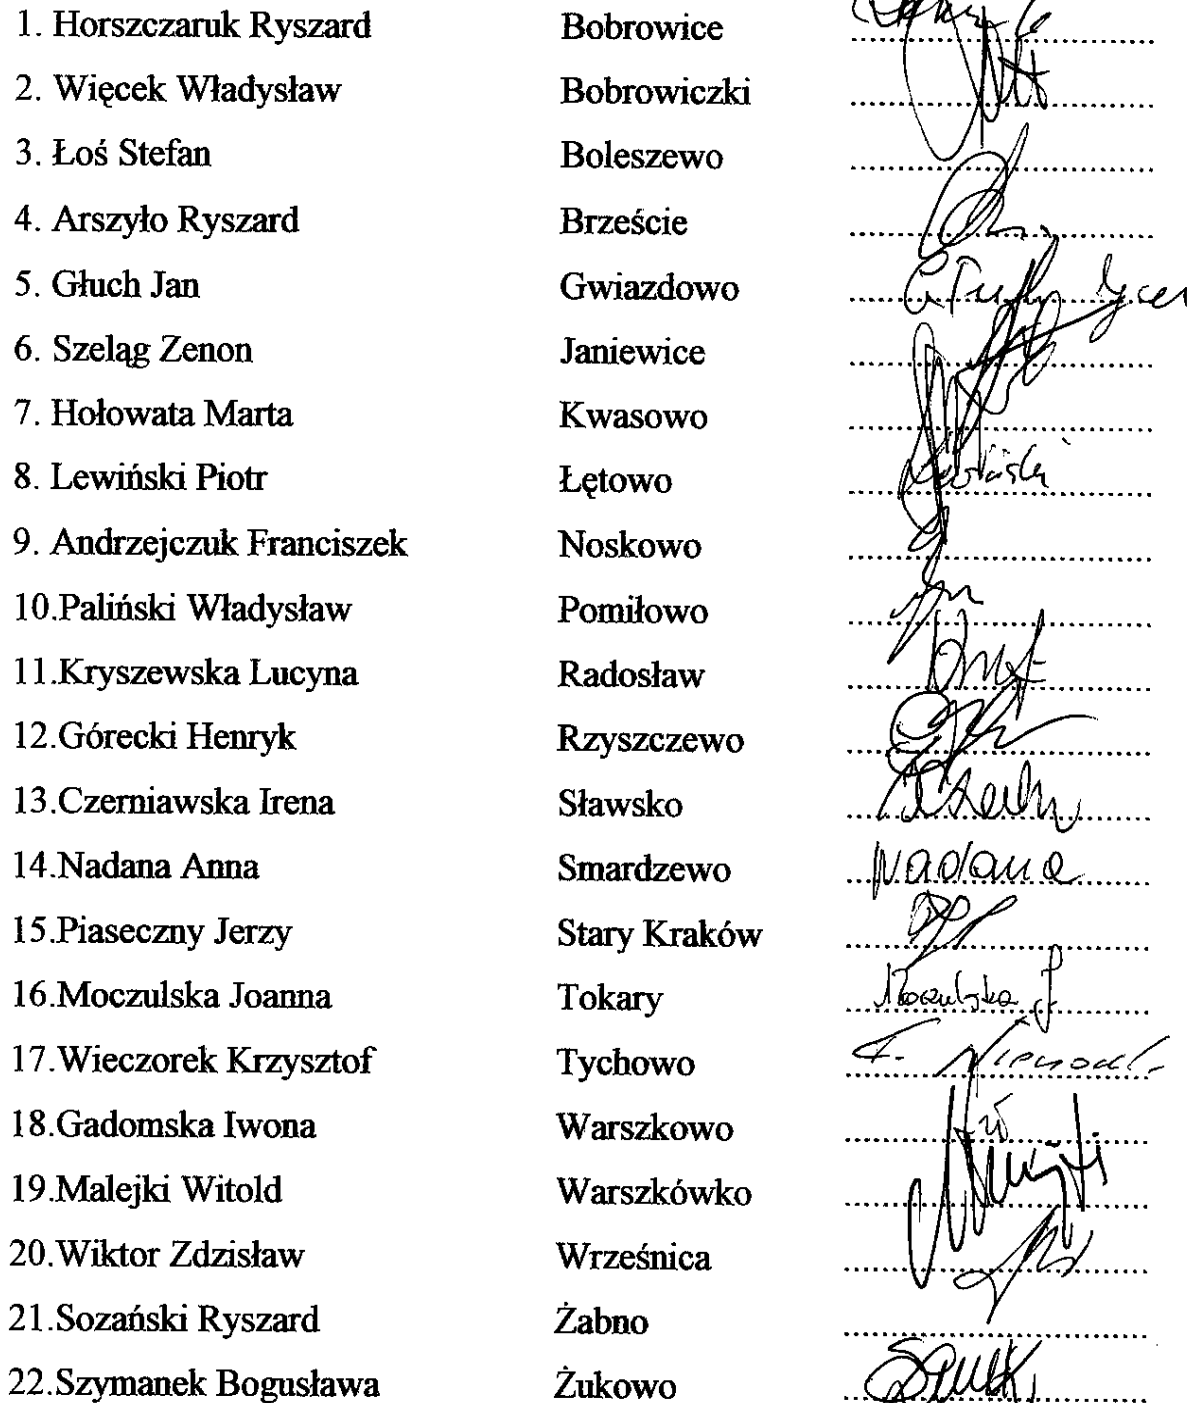 1. Horszczaruk Ryszard Bobrowice
2. Więcek Władysław Bobrowiczki
3. Łoś Stefan Boleszewo
4. Arszyło Ryszard Brzeście
5. Głuch Jan Gwiazdowo
6. Szeląg Zenon Janiewice
7. Hołowata Marta Kwasowo
8. Lewiński Piotr Łętowo
9. Andrzejczuk Franciszek Noskowo
10.Paliński Władysław Pomiłowo
11.Kryszewska Lucyna Radosław
12.Górecki Henryk Rzyszczewo
13.Czerniawska Irena Sławsko
14.Nadana Anna Smardzewo Nadana
15.Piaseczny Jerzy Stary Kraków
16.Moczulska Joanna Tokary Moczulska J
17.Wieczorek Krzysztof Tychowo
18.Gadomska Iwona Warszkowo
19.Malejki Witold Warszkówko
20.Wiktor Zdzisław Wrześnica
21.Sozański Ryszard Żabno
22.Szymanek Bogusława Żukowo